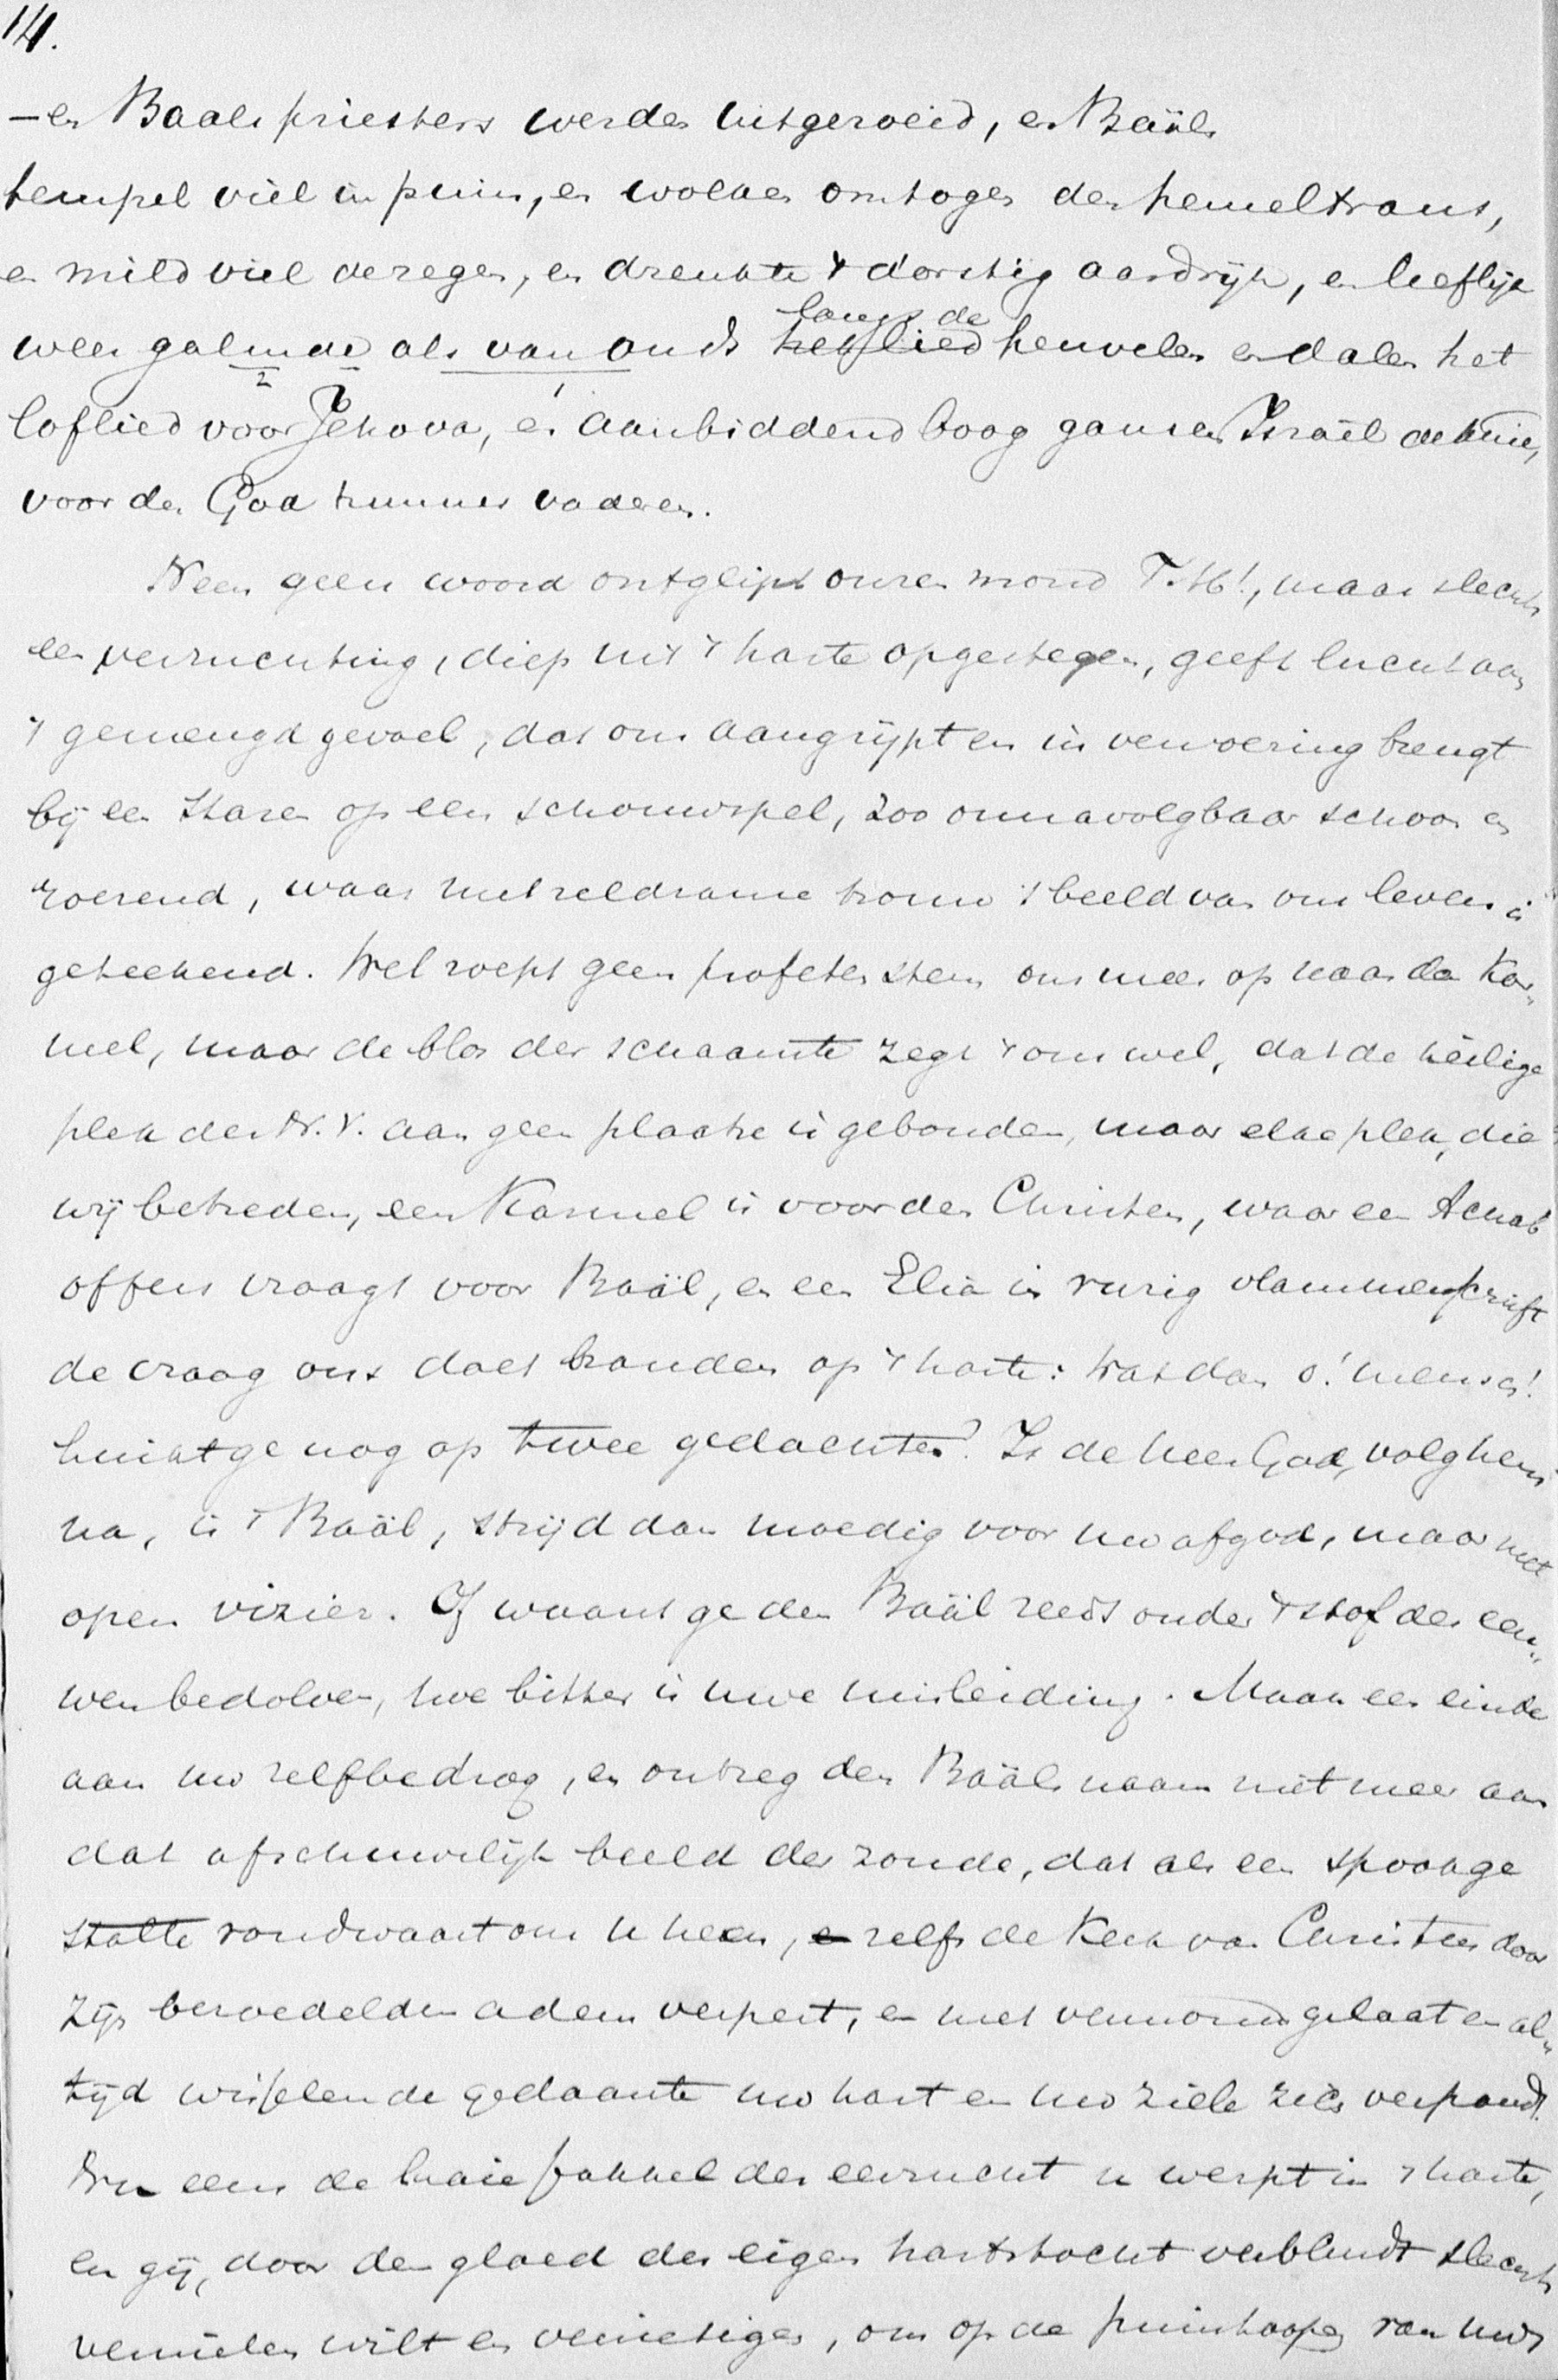 14.
– en Baalspriesters werden uitgeroeid, en Baäls
tempel viel in puin, en wolken omtogen den hemeltrans,
en mild viel de regen, en drenkte 't dorstig aardrijk, en lieflijk
weer galmde als van ouds het lied langs de heuvelen en dalen het
2 1
loflied voor Jehova, en aanbiddend boog gansch Israël de knie,
voor den God hunner vaderen.
Neen geen woord ontglipt onzen mond T. H!, maar slechts
een verzuchting, diep uit 't harte opgestegen, geeft lucht aan
't gemengd gevoel, dat ons aangrijpt en in vervoering brengt
bij een staren op een schouwspel, zoo onnavolgbaar schoon en
roerend, waar met zeldzame trouw 't beeld van ons leven is
geteekend. Wel roept geen profeten stem ons meer op naar den Kar„
mel, maar de blos der schaamte zegt 't ons wel, dat de heilige
plek des N. V. aan geen plaatse is gebonden, maar elke plek, die
wij betreden, een Karmel is voor den Christen, waar een Achab
offers vraagt voor Baäl, en een Elia in vurig vlammenschrift
de vraag ons doet branden op 't harte: Wat dan o! mensch!
hinkt ge nog op twee gedachten? Is de heer God, volg hem
na, is 't Baäl, strijd dan moedig voor uw afgod, maar met
open vizier. Of waant ge den Baäl reeds onder 't stof der eeu„
wen bedolven, hoe bitter is uwe misleiding. Maak een einde
aan uw zelfbedrog, en ontzeg den Baäls naam niet meer aan
dat afschuwelijk beeld der zonde, dat als een spookge
stalte rondwaart om u heen, en zelfs de Kerk van Christus door
zijn bezoedelden adem verpest, en met vermomd gelaat en al„
tijd wisselende gedaante uw hart en uw ziele zich verpandt.
Nu eens de laaie fakkel der eerzucht u werpt in 't harte,
en gij, door den gloed der eigen hartstocht verblindt slechts
vernielen wilt en vernietigen, om op de puinhoopen van uws